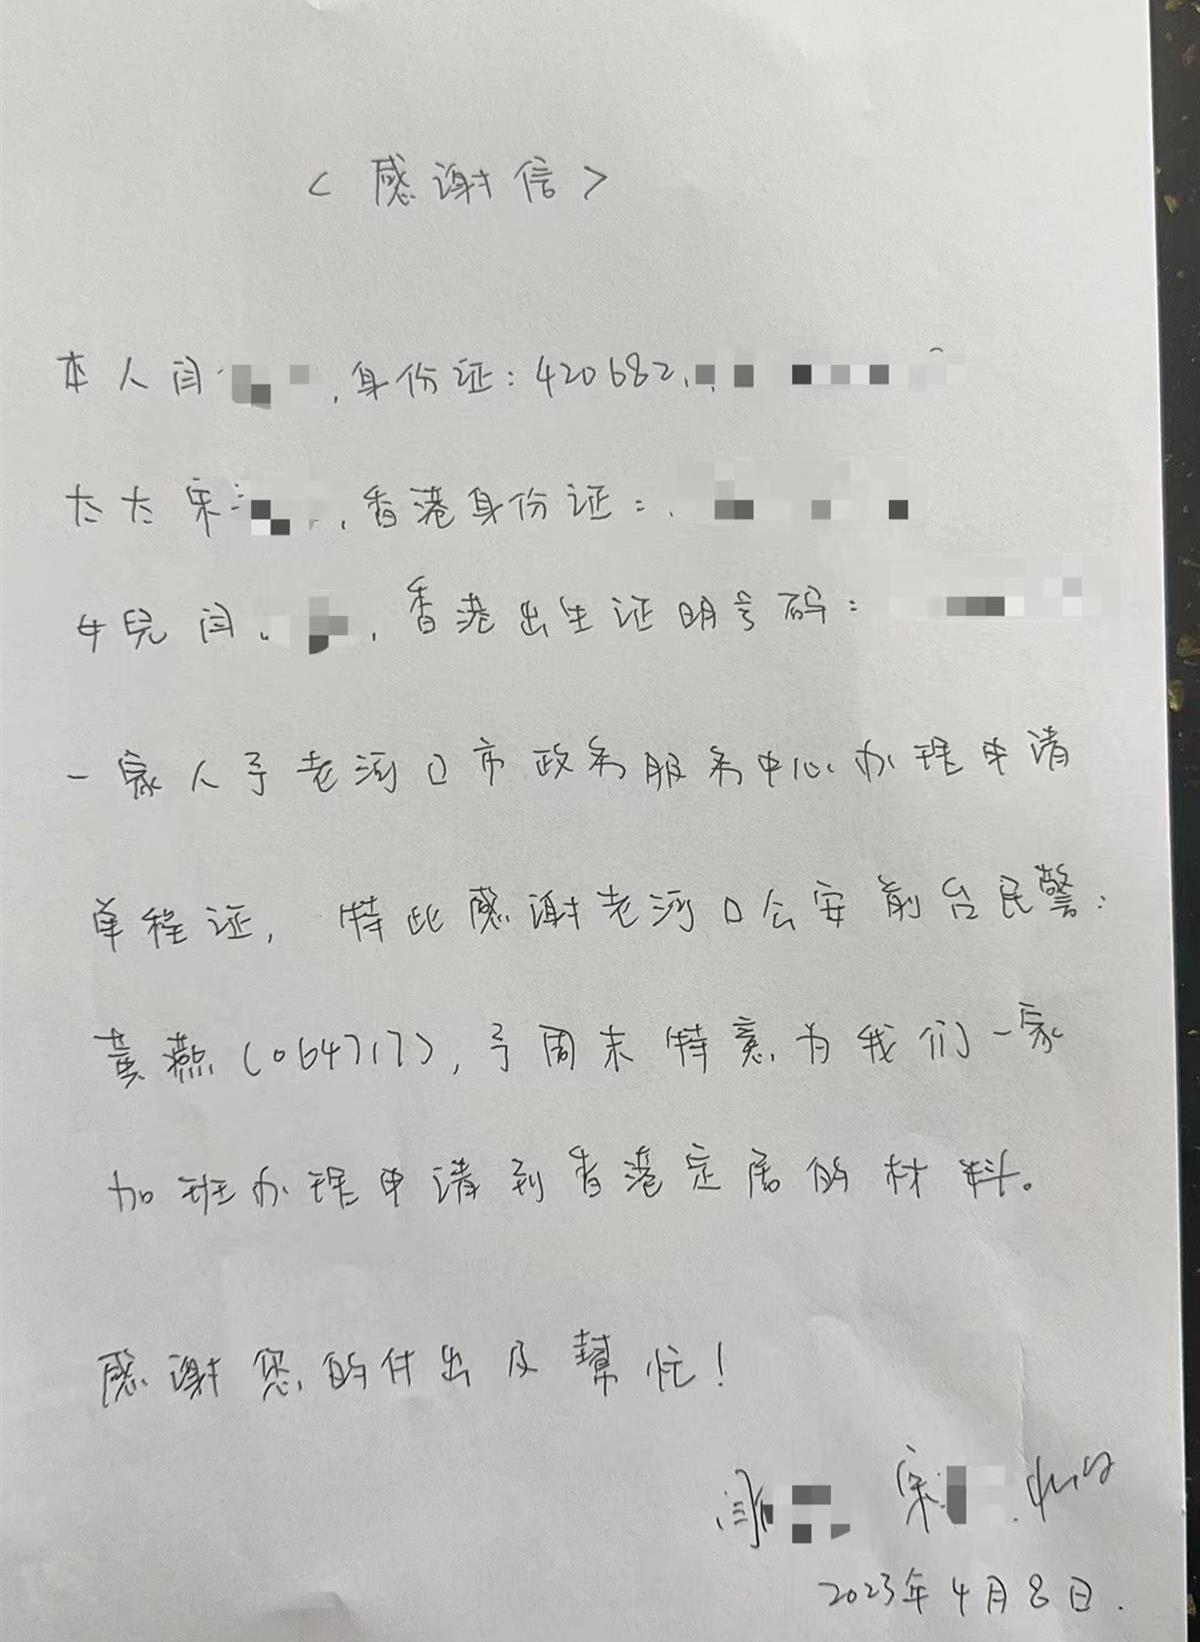 <感谢信>
本人闫，身份证：420682
太太宋，香港身份证：
女兒闫，香港出生证明号码：
一家人于老河口市政务服务中心办理申请
单程证，特此感谢老河口公安前台民警：
黄燕(064717)，于周末特意为我们一家
加班办理申请到香港定居的材料。
感谢您的付出及幫忙！
闫 宋
2023年4月8日.